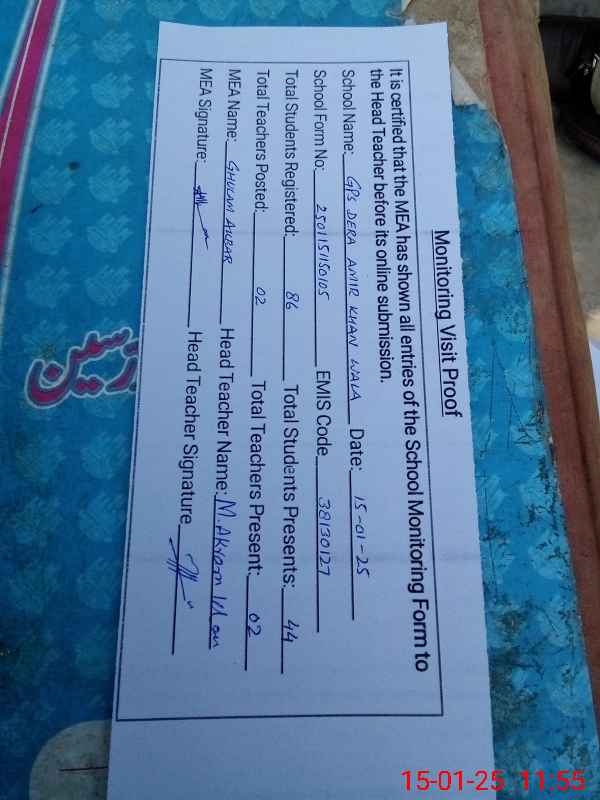 Monitoring Visit Proof
It is certified that the MEA has shown all entries of the School Monitoring Form to
the Head Teacher before its online submission.
School Name: GPS DERA AMIR KHAN WALA Date: 15-01-25
School Form No: 250115150105 EMIS Code 38130127
Total Students Registered: 86 Total Students Presents: 44
Total Teachers Posted: 02 Total Teachers Present: 02
MEA Name: GHULAM AKBAR Head Teacher Name: M. Akram Khan
MEA Signature: Head Teacher Signature
15-01-25 11:55